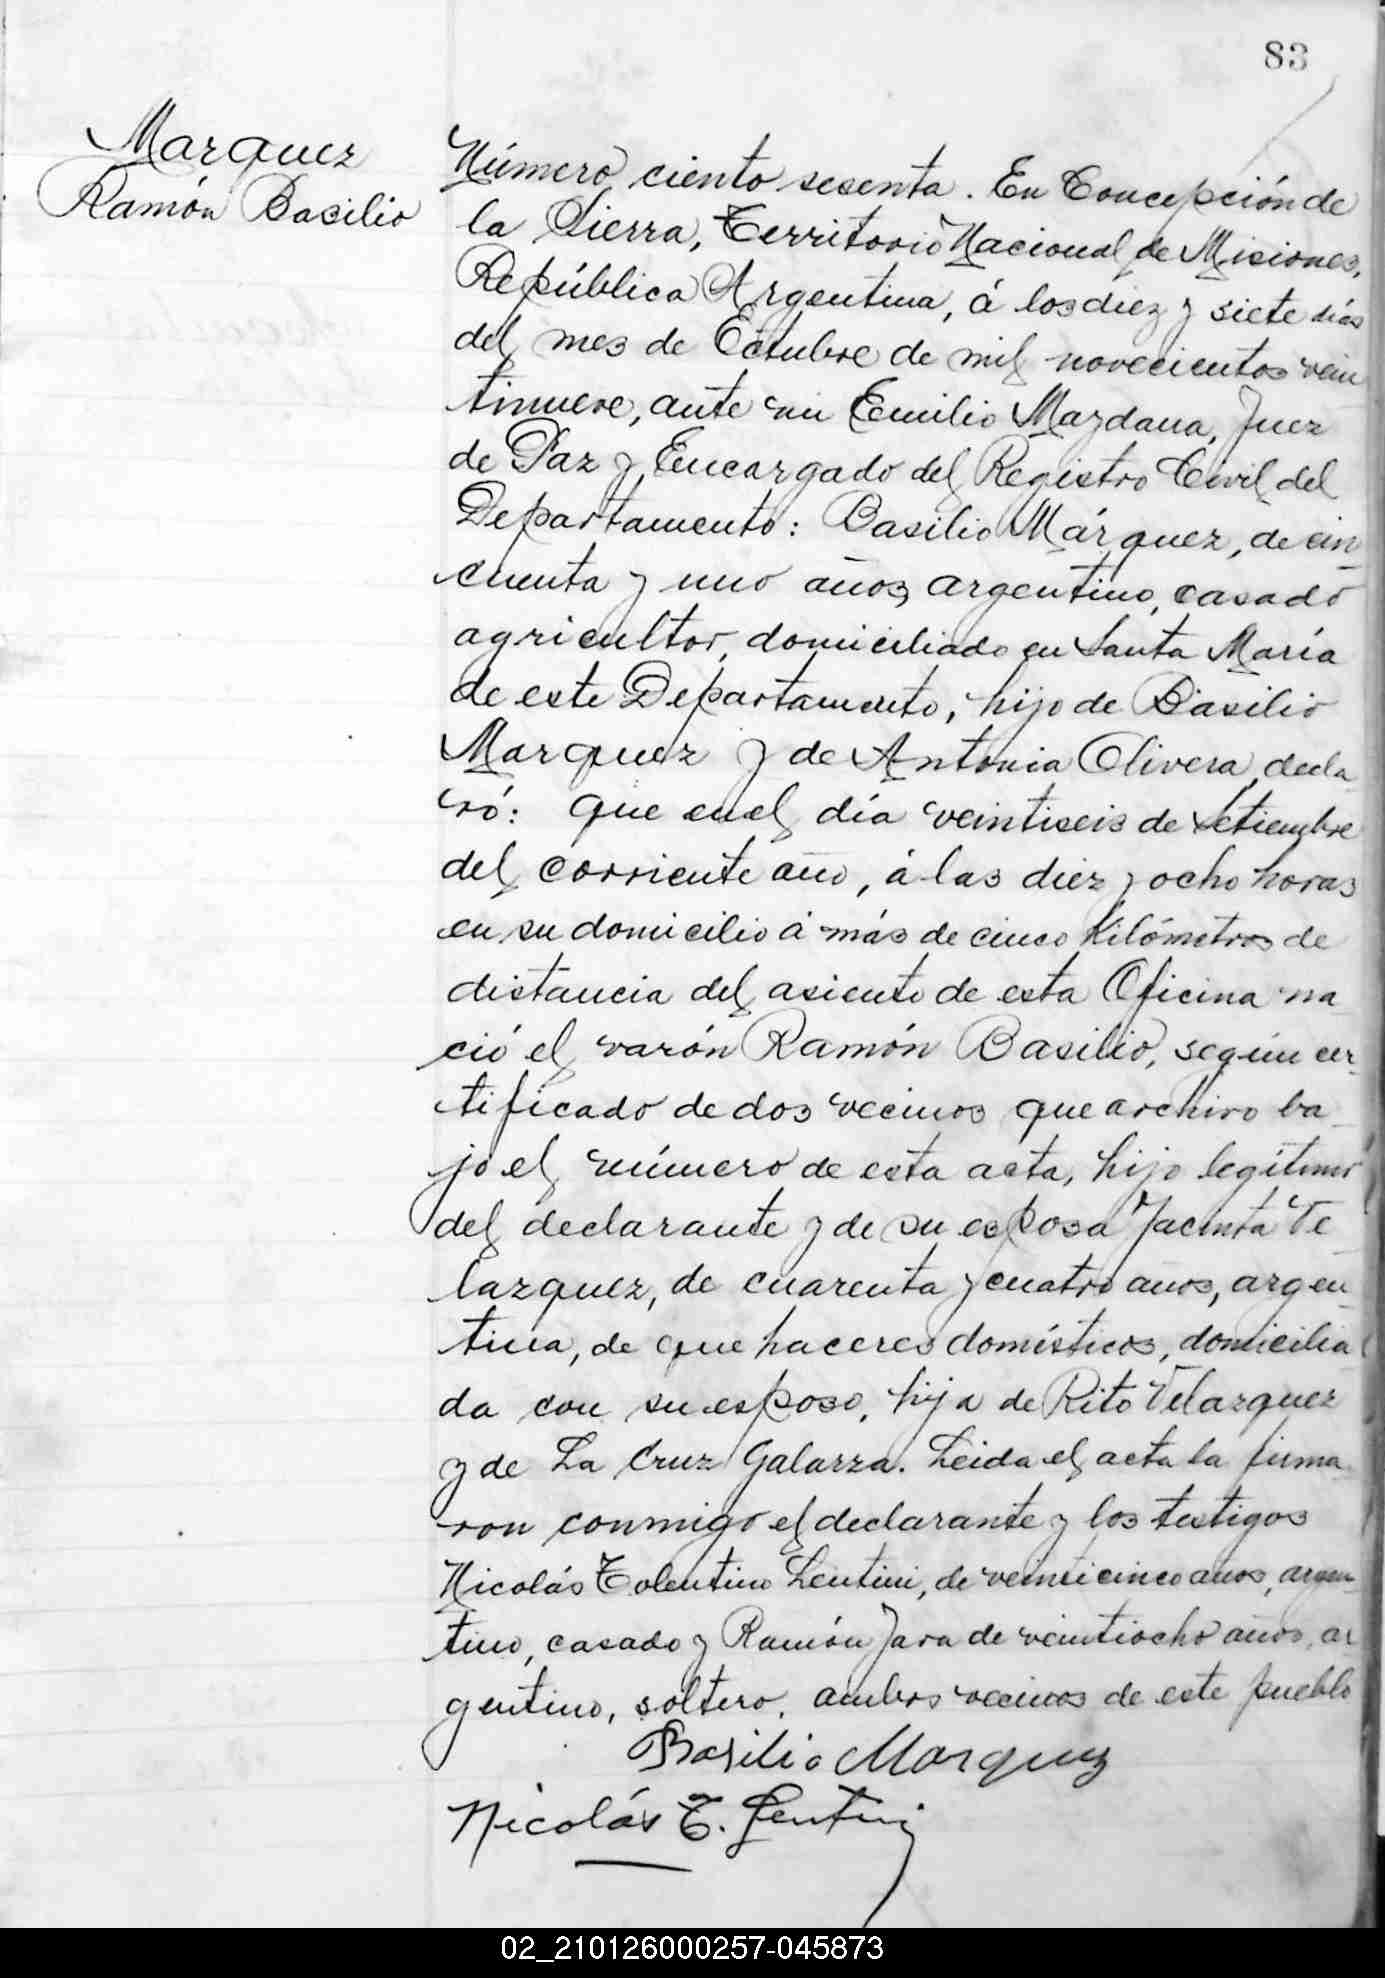 83
Marquez
Ramón Basilio
Número ciento sesenta. En Concepción de
la Sierra, Territorio Nacional de Misiones,
República Argentina, á los diez y siete días
del mes de Octubre de mil novecientos vein
tinueve, ante mi Emilio Mazdana, Juez
de Paz y Encargado del Registro Civil del
Departamento: Basilio Márquez, de cin
cuenta y uno años, argentino, casado
agricultor, domiciliado en Santa María
de este Departamento, hijo de Basilio
Marquez y de Antonia Olivera, decla
ró: que en el día veintiseis de Setiembre
del corriente año, á las diez y ocho horas
en su domicilio á más de cinco Kilómetros de
distancia del asiento de esta Oficina na
ció el varón Ramón Basilio, según cer
tificado de dos vecinos que archivo ba
jo el número de esta acta, hijo legítimo
del declarante y de su esposa Jacinta Ve
lazquez, de cuarenta y cuatro años, argen
tina, de que haceres domésticos, domicilia
da con su esposo, hija de Rito Velazquez
y de La Cruz Galarza. Leida el acta la firma
ron conmigo el declarante y los testigos
Nicolás Tolentino Lentini, de veinticinco años, argen
tino, casado y Ramón Jara de veintiocho años, ar
gentino, soltero, ambos vecinos de este pueblo
Basilio Marquez
Nicolás T. Lentini
02_210126000257-045873